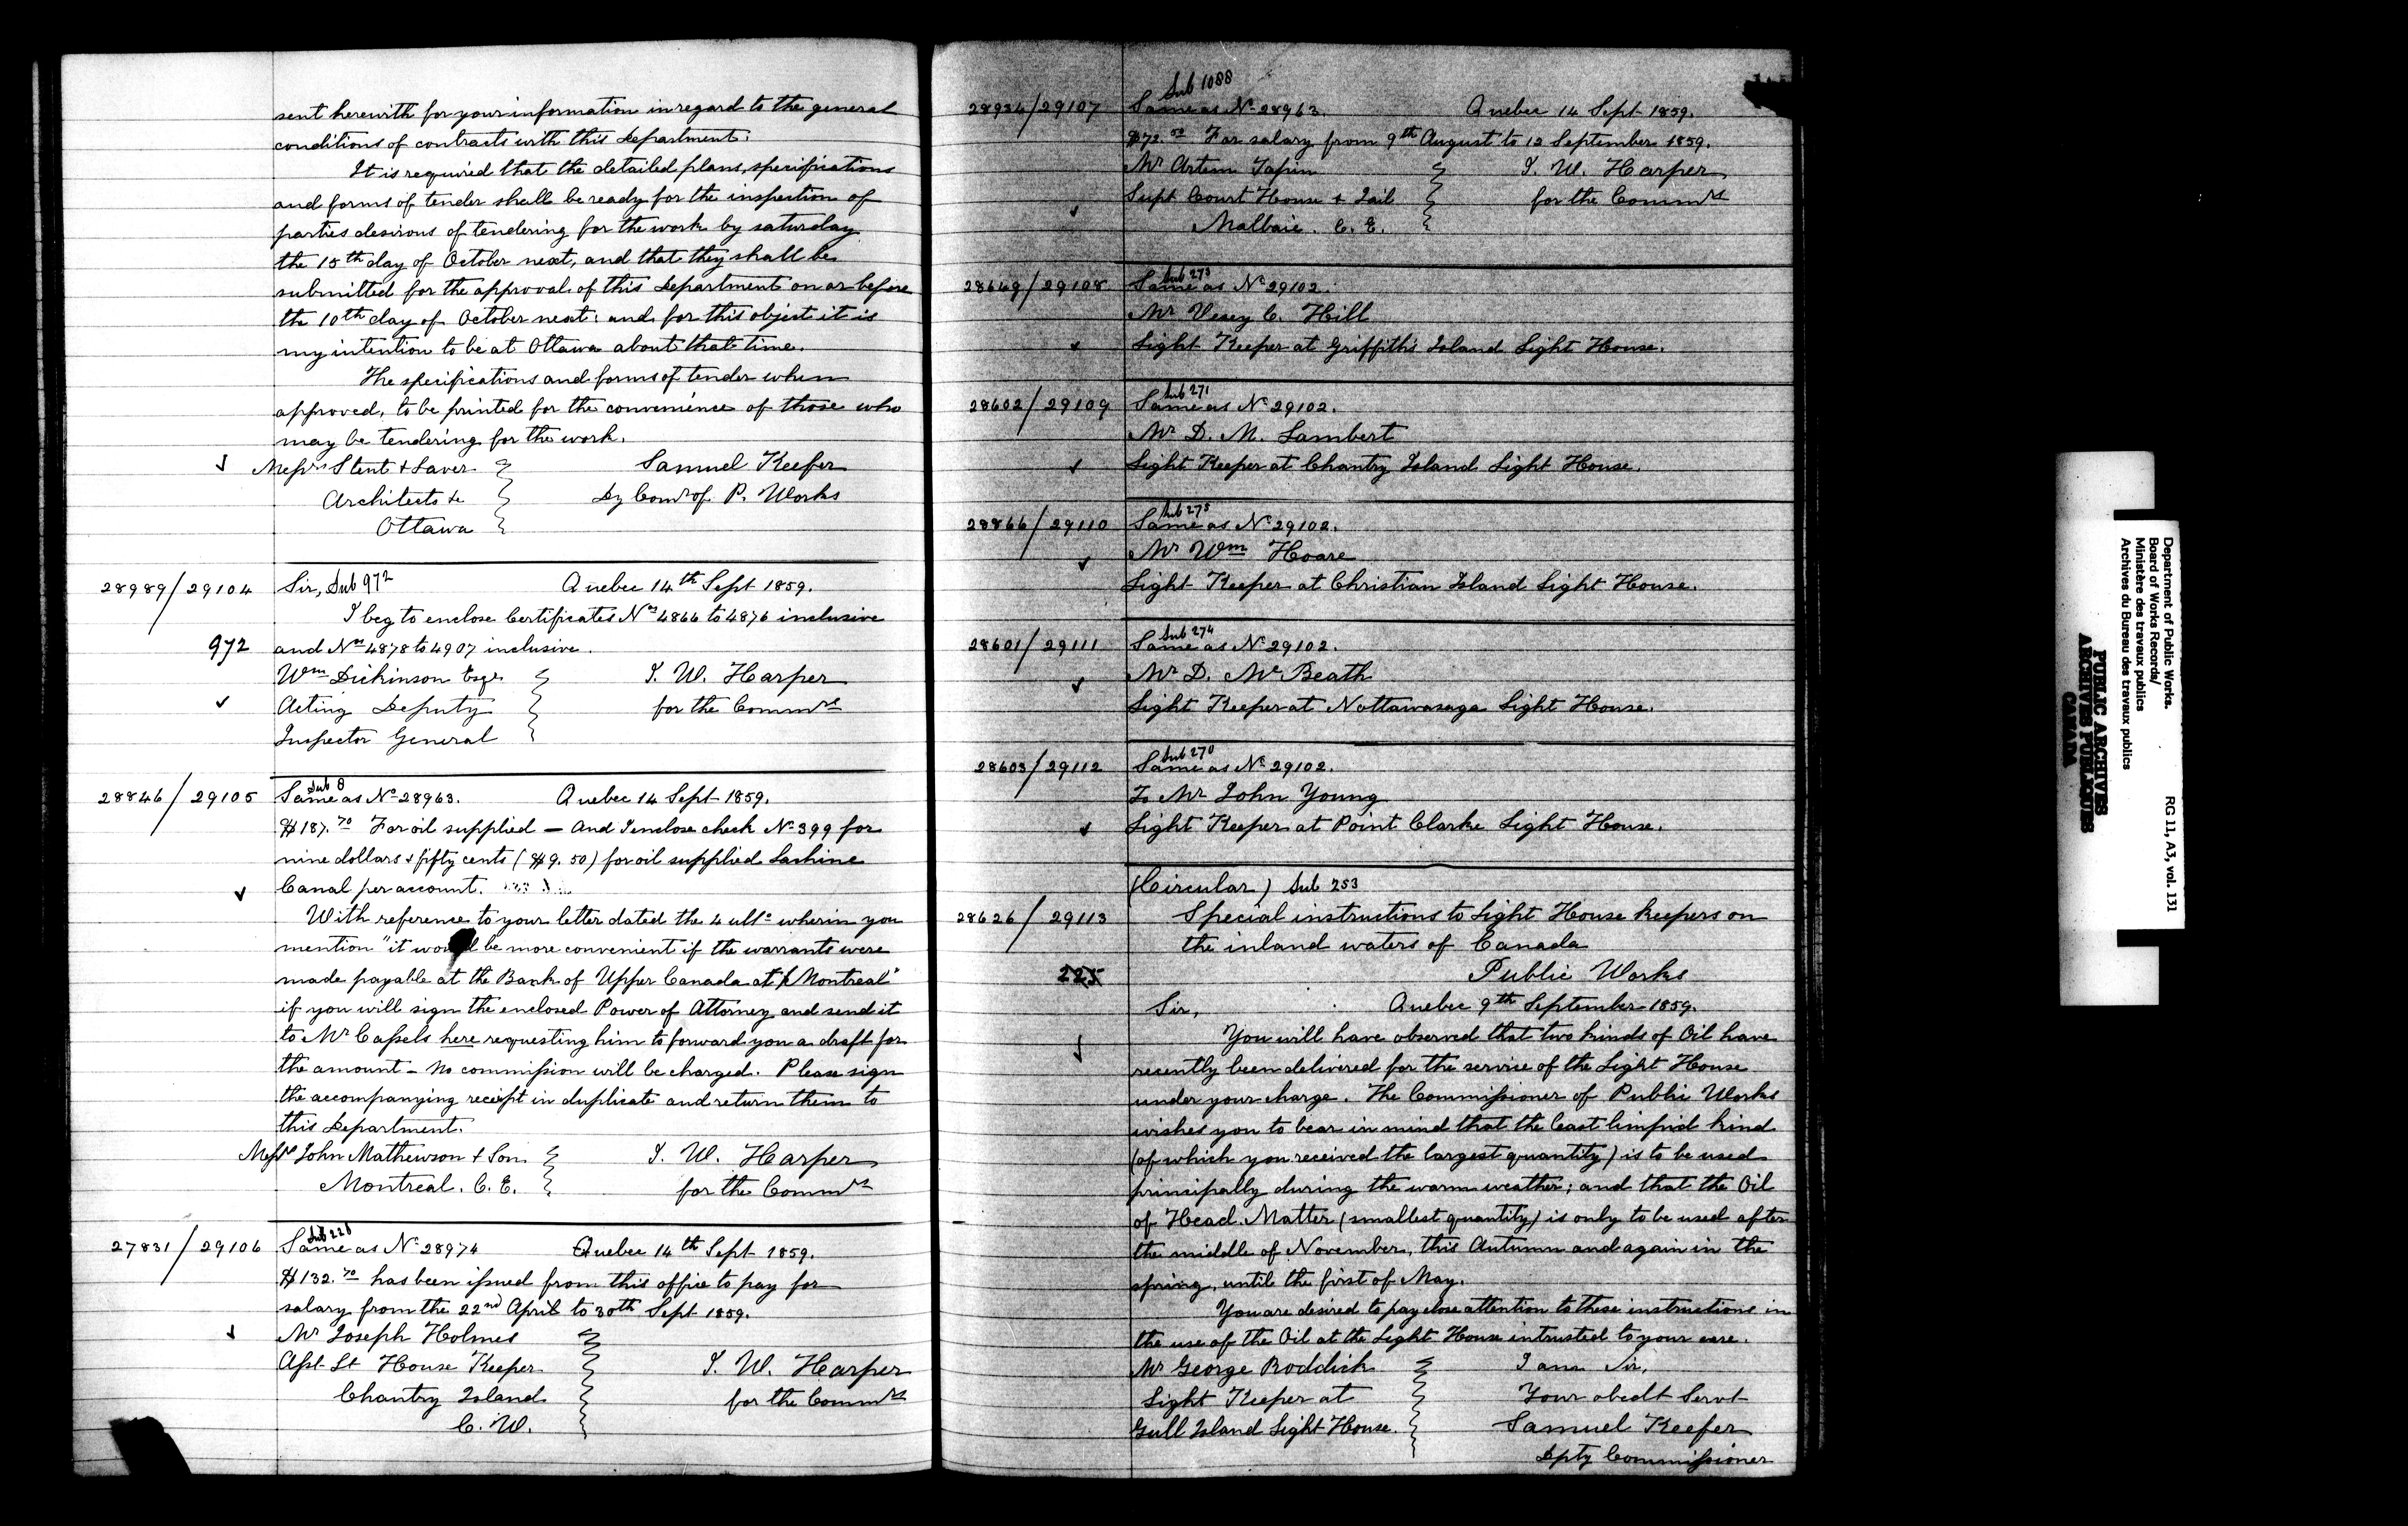 sent herewith for your information in regard to the general
conditions of contracts with this Department.
It is required that the detailed plans, specifications
and forms of tender shall be ready for the inspection of
parties desirous of tendering for the work by saturday
the 15th day of October next, and that they shall be
submitted for the approval of this Department on or before
the 10th day of October next: and for this object it is
my intention to be at Ottawa about that time.
The specifications and forms of tender when
approved, to be printed for the convenience of those who
may be tendering for the work.
Messrs Stent & Laver Samuel Keefer
Architects &c Dy Comr of P. Works
Ottawa
28989/29104 Sir, Sub 972 Quebec 14th Sept 1859.
I beg to enclose Certificates Nos 4866 to 4876 inclusive
972 and Nos 4878 to 4907 inclusive.
Wm Dickinson Esqr J. W. Harper
Acting Deputy for the Commrs
Inspector General
Sub 8
28846/29105 Same as No 28963. Quebec 14 Sept 1859.
$187.70 For oil supplied — And I enclose check No 399 for
nine dollars & fifty cents ($9.50) for oil supplied Lachine
Canal per account.
With reference to your letter dated the 4 ulto wherin you
mention "it would be more convenient if the warrants were
made payable at the Bank of Upper Canada at Montreal"
if you will sign the enclosed Power of Attorney and send it
to Mr Cassels here requesting him to forward you a draft for
the amount — no commission will be charged. Please sign
the accompanying receipt in duplicate and return them to
this Department.
Messrs John Mathewson & Son J. W. Harper
Montreal. C. E. for the Commrs
27831/29106 Same as No 28974 Quebec 14th Sept 1859.
$132.70 has been issued from this office to pay for
salary from the 22nd April to 30th Sept 1859.
Mr Joseph Holmes
Asst Lt House Keeper J. W. Harper
Chantry Island for the Commrs
C. W.
Sub 1088
28934/29107 Same as No 28963. Quebec 14 Sept 1859.
$72.50 For salary from 9th August to 12 September 1859.
Mr Artem J. W. Harper
Supt Court House & Jail for the Commrs
Malbaie. C. E.
Sub 273
28649/29108 Same as No 29102.
Mr Vesey C. Hill
Light Keeper at Griffith's Island Light House.
Sub 271
28602/29109 Same as No 29102.
Mr D. M. Lambert
Light Keeper at Chantry Island Light House.
Sub 275
28866/29110 Same as No 29102.
Mr Wm Hoare
Light Keeper at Christian Island Light House.
Sub 274
28601/29111 Same as No 29102.
Mr D. McBeath
Light Keeper at Nottawasaga Light House.
Sub 270
28603/29112 Same as No 29102.
To Mr John Young
Light Keeper at Point Clarke Light House.
(Circular) Sub 253
28626/29113 Special instructions to Light House keepers on
the inland waters of Canada
225 Public Works
Sir, Quebec 9th September 1859.
You will have observed that two kinds of Oil have
recently been delivered for the service of the Light House
under your charge. The Commissioner of Public Works
wishes you to bear in mind that the least limpid kind
(of which you received the largest quantity) is to be used
principally during the warm weather; and that the Oil
of Head Matter (smallest quantity) is only to be used after
the middle of November, this Autumn and again in the
spring, until the first of May.
You are desired to pay close attention to these instructions in
the use of the Oil at the Light House intrusted to your care.
Mr George Roddick I am Sir,
Light Keeper at Your obedt Servt
Gull Island Light House. Samuel Keefer
Dpty Commissioner
Department of Public Works.
Board of Works Records/
Ministère des travaux publics
Archives du Bureau des travaux publics
RG 11, A3, vol. 131
PUBLIC ARCHIVES
ARCHIVES PUBLIQUES
CANADA